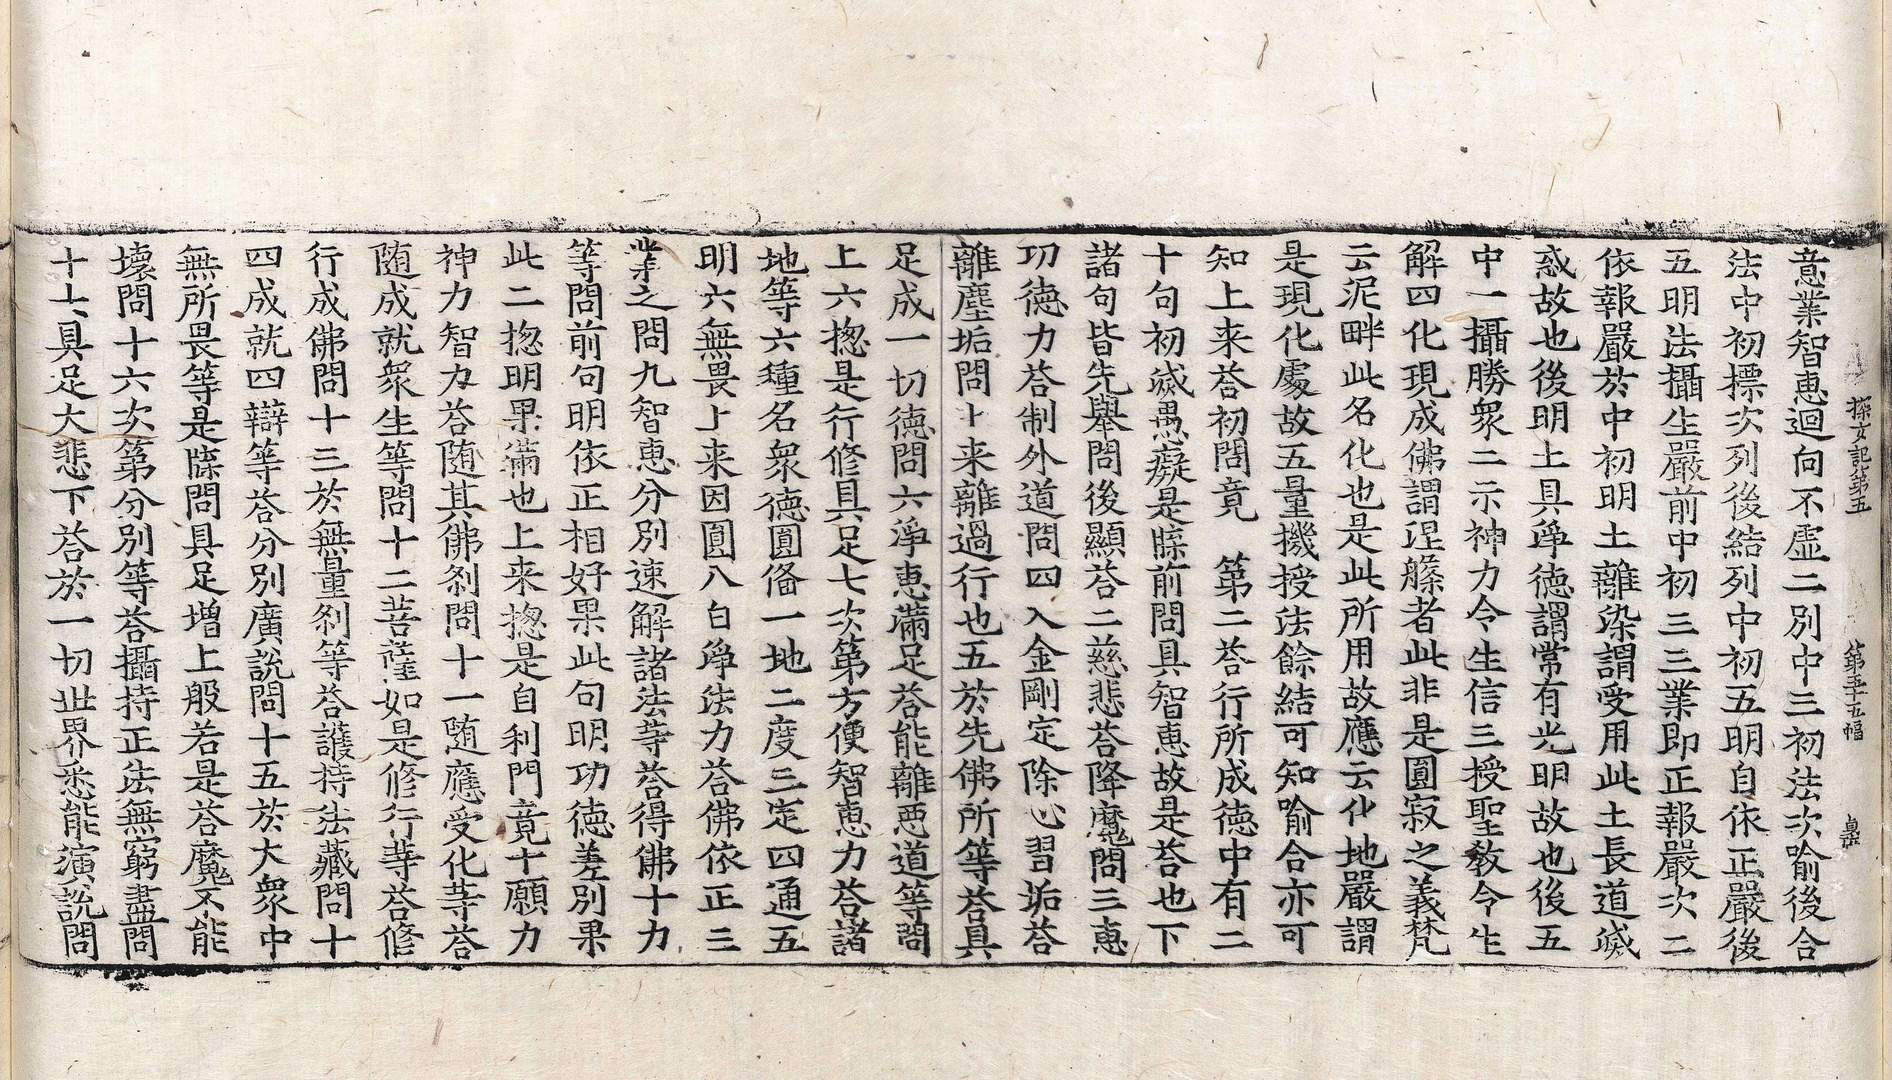 探玄記第五　第五十五幅　鼎
意業智恵迴向不虛二別中三初法次喻後合
法中初摽次列後結列中初五明自依正嚴後
五明法攝生嚴前中初三三業即正報嚴次二
依報嚴於中初明土離染謂受用此土長道滅
惑故也後明土具淨徳謂常有光明故也後五
中一攝勝衆二示神力令生信三授聖教令生
解四化現成佛謂涅槃者此非是圓寂之義梵
云泥畔此名化也是此所用故應云化地嚴謂
是現化處故五量機授法餘結可知喻合亦可
知上来荅初問竟　第二荅行所成徳中有二
十句初滅愚癡是牒前問具智恵故是荅也下
諸句皆先舉問後顯荅二慈悲荅降魔問三恵
功徳力荅制外道問四入金剛定除心習垢荅
離塵垢問上来離過行也五於先佛所等荅具
足成一切徳問六淨恵滿足荅能離惡道等問
上六揔是行修具足七次第方便智恵力荅諸
地等六種名衆徳圓俻一地二度三定四通五
明六無畏上来因圓八白淨法力荅佛依正三
業等之問九智恵分別速解諸法等荅得佛十力
等問前句明依正相好果此句明功徳差別果
此二揔明果滿也上来揔是自利門竟十願力
神力智力荅随其佛刹問十一随應受化等荅
随成就衆生等問十二菩薩如是修行等荅修
行成佛問十三於無量刹等荅護持法藏問十
四成就四辯等荅分別廣説問十五於大衆中
無所畏等是牒問具足增上般若是荅魔不能
壊問十六次第分別等荅攝持正法無窮盡問
十七具足大悲下荅於一切世界悉能演説問